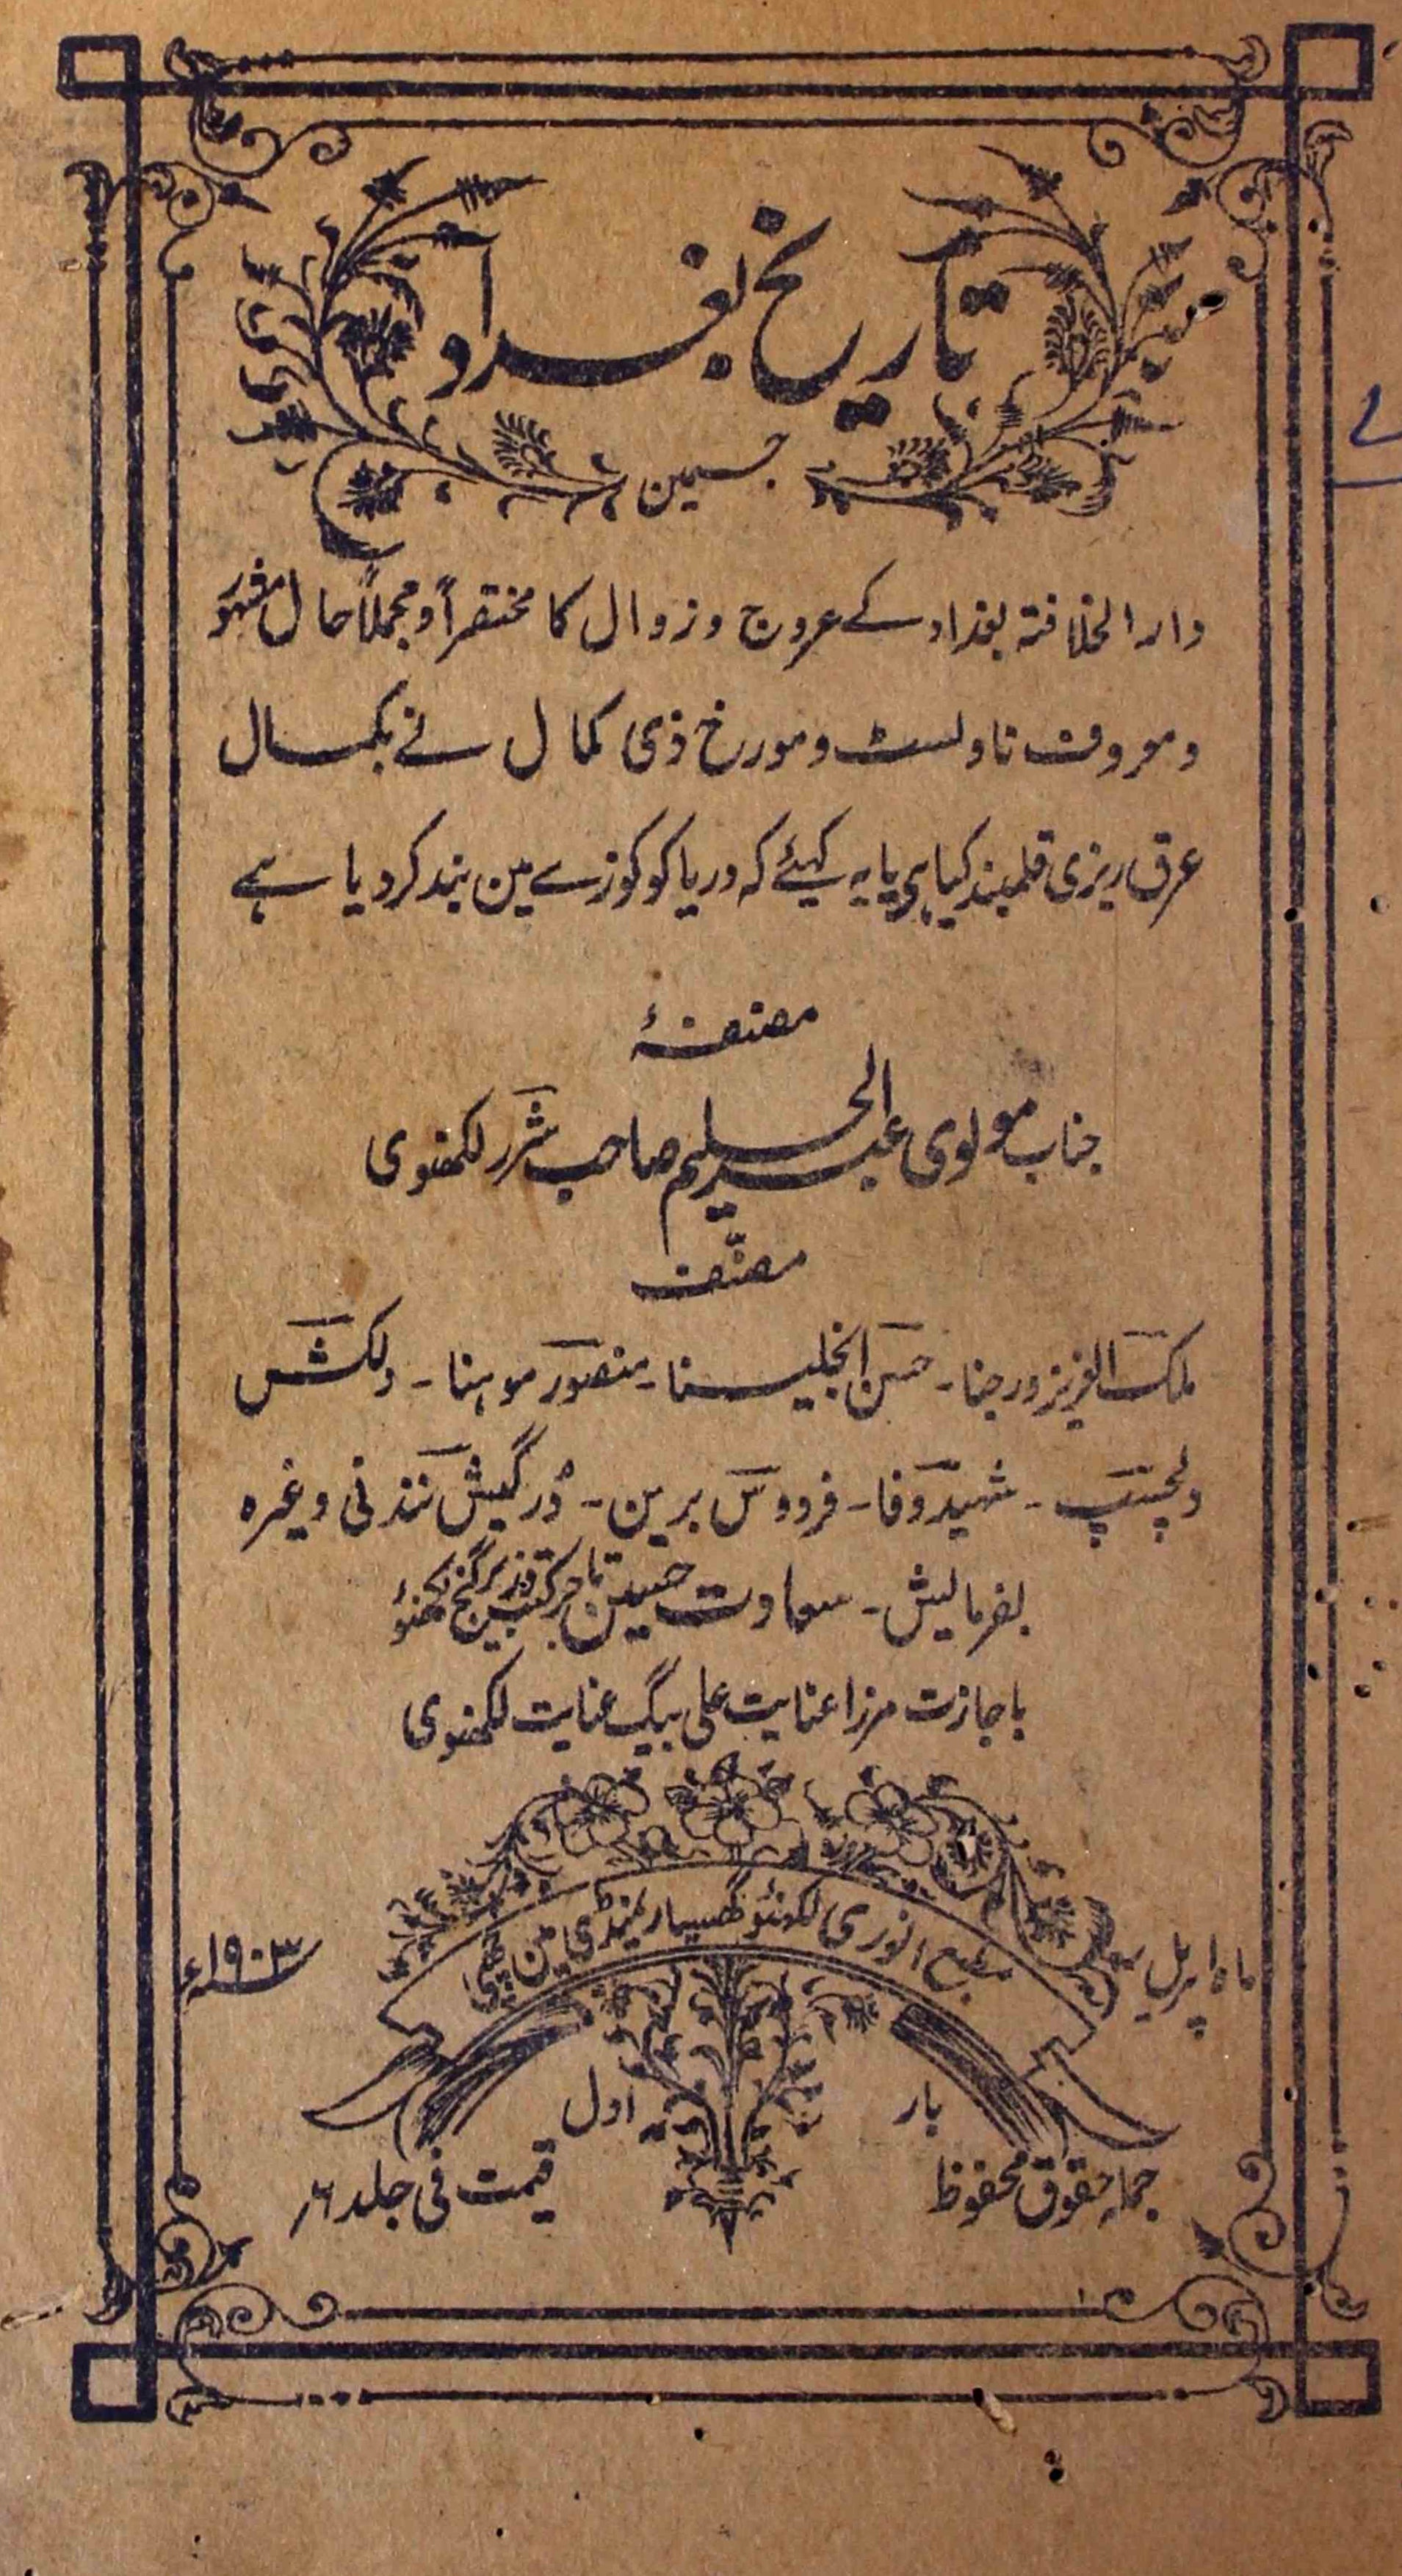 تاریخ بغداد
جسمین
دار الخلافتہ بغداد کے عروج و زوال کا مختصراً و مجملاً حال مشہور
و معروف ناولسٹ و مورخ ذی کمال نے بکمال
عرق ریزی قلمبند کیا ہی یا یہ کہئے کہ دریا کو کوزے مین بند کر دیا ہے
مصنفۂ
جناب مولوی عبد الحلیم صاحب شرر لکھنوی
مصنّف
ملک العزیز ورجنا۔ حسن انجلینا۔ منصور موہنا۔ دلکش
دلچسپ۔ شہید وفا۔ فردوس برین۔ دُرگیش نندنی وغیرہ
بفرمایش۔ سعادت حسین تاجر کتب نذیر گنج لکھنؤ
باجازت مرزا عنایت علی بیگ عنایت لکھنوی
مطبع انوری لکھنؤ گھسیار منڈی مین چھپی
ماہ اپریل سنہ ۱۹۰۳ء
بار اول
جملہ حقوق محفوظ
قیمت فی جلد ۶؍